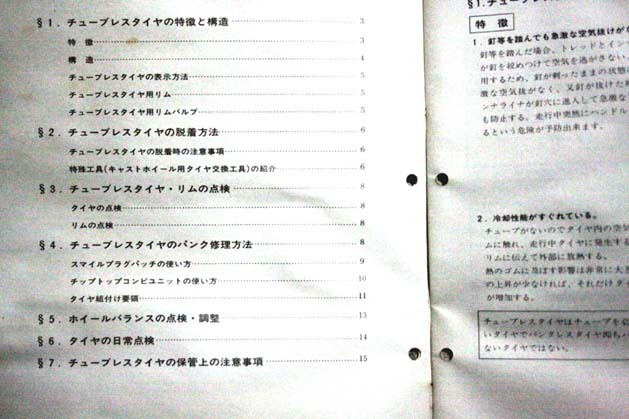 §1. チューブレスタイヤの特徴と構造 3
特徴 3
構造 4
チューブレスタイヤの表示方法 5
チューブレスタイヤ用リム 5
チューブレスタイヤ用リムバルブ 5
§2. チューブレスタイヤの脱着方法 6
チューブレスタイヤの脱着時の注意事項 6
特殊工具(キャストホイール用タイヤ交換工具)の紹介 6
§3. チューブレスタイヤ・リムの点検 8
タイヤの点検 8
リムの点検 8
§4. チューブレスタイヤのパンク修理方法 8
スマイルプラグパッチの使い方 9
チップトップコンビユニットの使い方 10
タイヤ組付け要領 11
§5. ホイールバランスの点検・調整 13
§6. タイヤの日常点検 14
§7. チューブレスタイヤの保管上の注意事項 15
§1. チューブレスタイヤ
特徴
1. 釘等を踏んでも急激な空気抜けが
釘等を踏んだ場合、トレッドとイン
が釘を絞めつけて空気を逃がさない
用するため、釘が刺ったままの状態
激な空気抜がなく、又釘が抜けた
ンナライナが釘穴に進入して急激な
も防止する。走行中突然にハンドル
るという危険が予防出来ます。
2. 冷却性能がすぐれている。
チューブがないのでタイヤ内の空気
ムに触れ、走行中タイヤに発生する
リムに伝えて外部に放熱する。
熱のゴムに及ぼす影響は非常に大
の上昇が少なければ、それだけタイ
が増加する。
チューブレスタイヤはチューブを
いタイヤでパンクレスタイヤ即ちパ
ないタイヤではない。